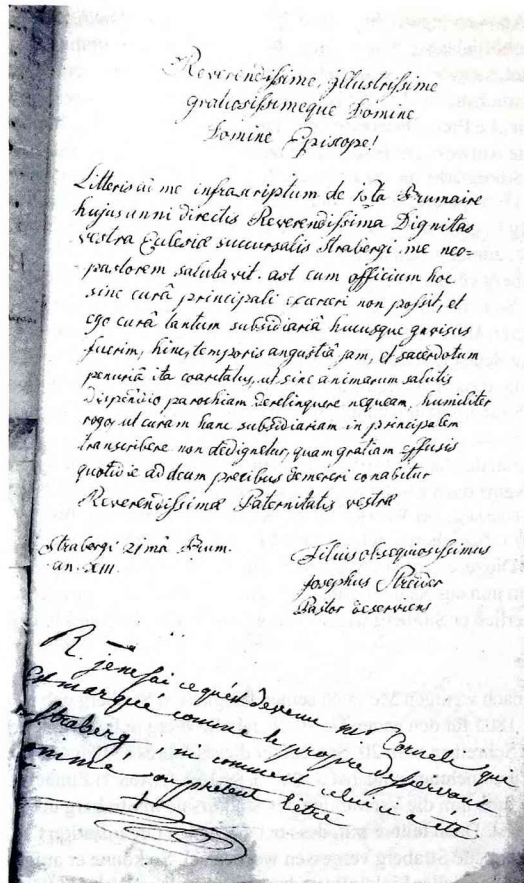 Reverendissime, illustrissime
gratiosissimeque Domine
Domine Episcope!
Litteris ad me infrascriptum de 10ta Brumaire
hujus anni directis Reverendissima Dignitas
vestra Eclesiæ succursalis Strabergi me neo-
pastorem salutavit. ast cum officium hoc
sine curâ principali exerceri non possit, et
ego curâ tantum subsidiariâ hucusque gavisus
fuerim, hinc, temporis angustiâ jam, et sacerdotum
penuriâ ita coarctatus, ut sine animarum salutis
dispendio parochiam derelinquere nequeam, humiliter
rogo, ut curam hanc subsidiariam in principalem
transcribere non dedignetur, quam gratiam effusis
quotidie ad deum precibus demereri conabitur
Reverendissimæ Paternitatis vestræ
Strabergi 21mâ Brum.
an. XIII.
Filius obsequiosissimus
Josephus
Pastor deserviens
R. je ne sai ce qu'est devenu mr Corneli que
est marqué comme le propre desservant
Straberg, ni comment celui ci a été
nommé ou prétend l'être